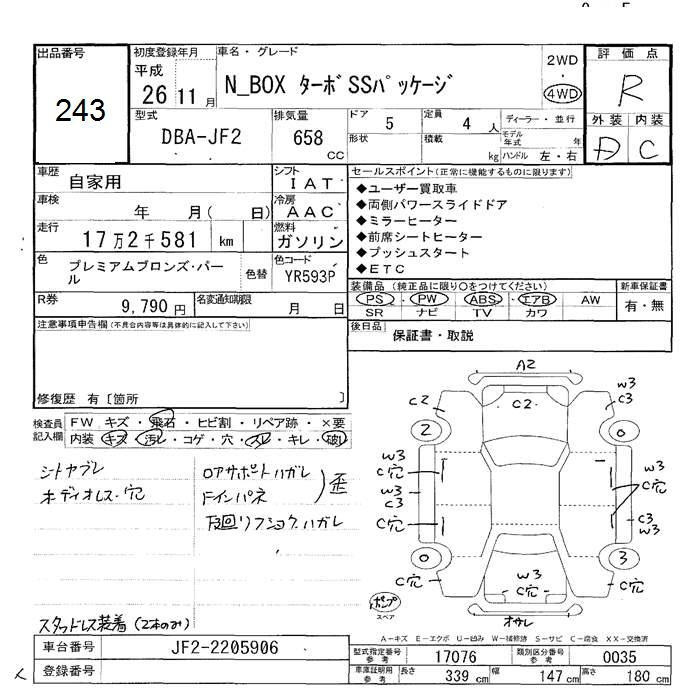 出品番号
243
初度登録年月
平成
26 11 月
車名・グレード
N_BOX ターボSSパッケージ
2WD
・
4WD
評価点
R
型式
DBA-JF2
排気量
658
CC
ドア 5
定員 4 人
形状
積載 kg
ディーラー・並行
モデル年式 年
ハンドル 左・右
外装 内装
D C
車歴
自家用
シフト
IAT
車検
年 月( 日)
冷房
AAC
走行
17万2千581 km
燃料
ガソリン
色
プレミアムブロンズ・パール
色替
色コード
YR593P
R券
9,790 円
名変通知期限
月 日
セールスポイント(正常に機能するものに限ります)
◆ユーザー買取車
◆両側パワースライドドア
◆ミラーヒーター
◆前席シートヒーター
◆プッシュスタート
◆ETC
装備品 (純正品に限り○をつけてください)
PS・PW・ABS・エアB AW
SR ナビ TV カワ
新車保証書
有・無
後日品
保証書・取説
注意事項申告欄(不具合内容等は具体的に記入して下さい)
修復歴 有〔箇所 〕
検査員記入欄
FW キズ・飛石・ヒビ割・リペア跡・×要
内装 キズ・汚レ・コゲ・穴・スレ・キレ・破レ
シートヤブレ
ボディオレス・穴
ロアサポートハガレ
ドインパネ
下廻リフショクハガレ
歪
スタッドレス装着(2本のみ)
A2
C2
C2
W3
C3
2
0
W3
C穴
W3
C3
C穴
C穴
C3
W3
0
3
C穴
W3
C穴
C穴
オサレ
ポンプ
スペア
A-キズ E-エクボ U-凹み W-補修跡 S-サビ C-腐食 XX-交換済
車台番号
JF2-2205906
登録番号
型式指定番号
参考
17076
類別区分番号
参考
0035
車庫証明用
参考
長さ 339 cm
幅 147 cm
高さ 180 cm